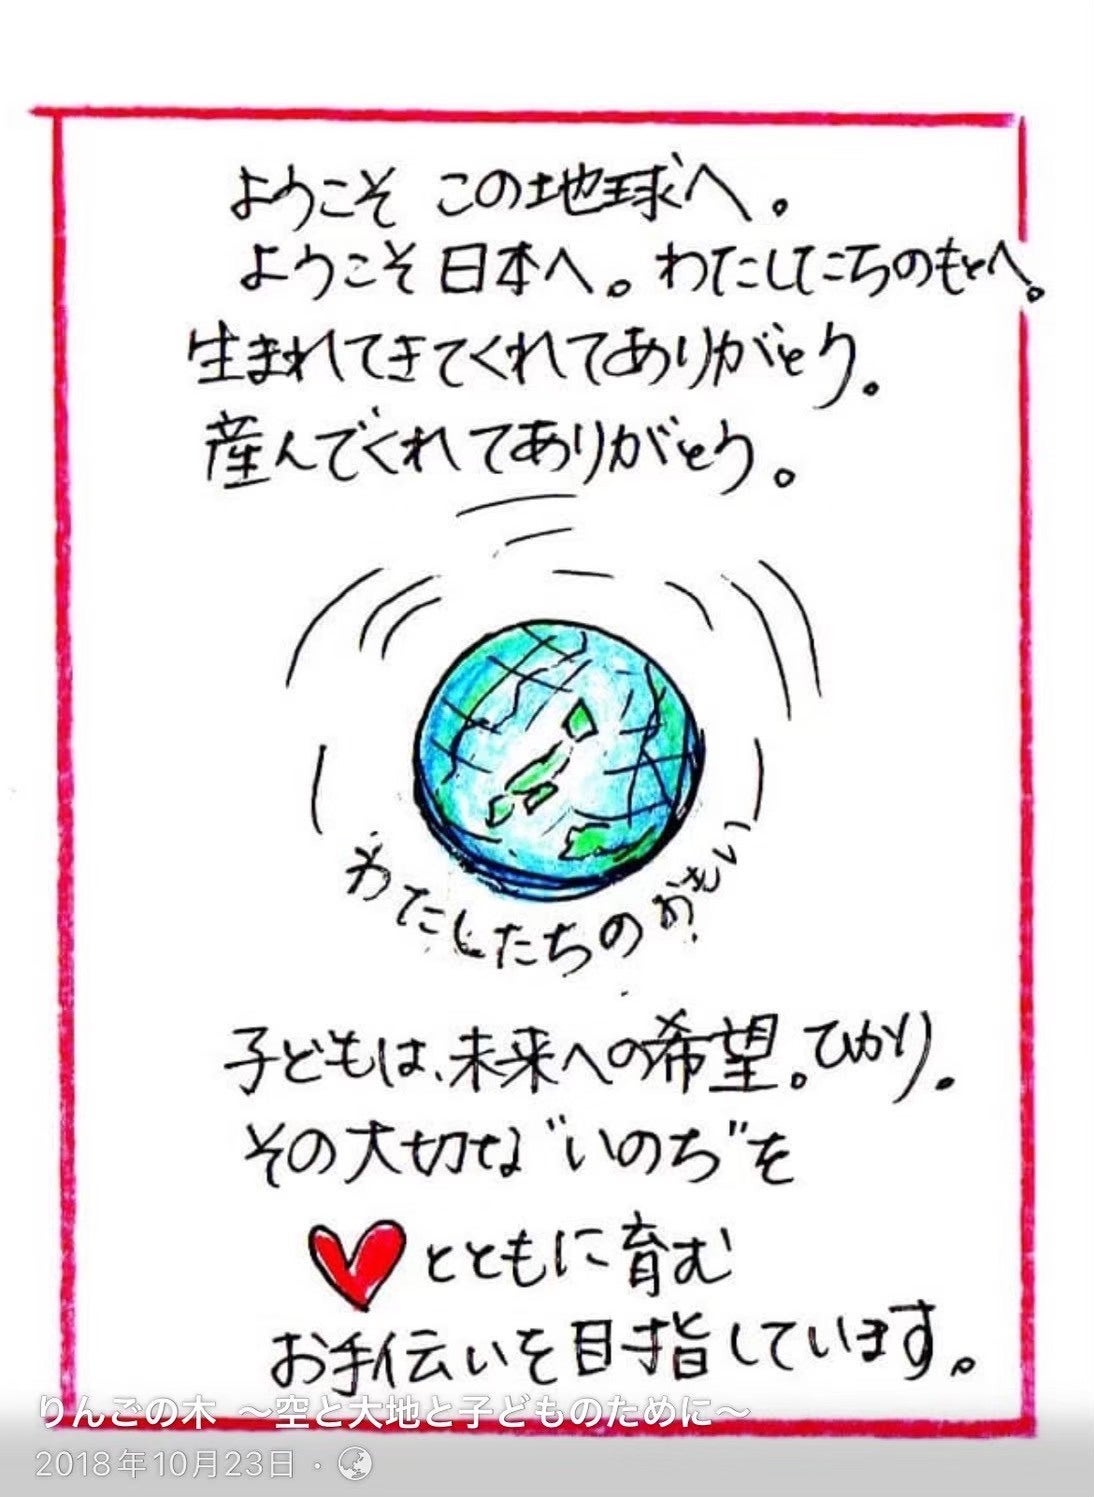 ようこそ この地球へ。
ようこそ日本へ。わたしたちのもとへ。
生まれてきてくれてありがとう。
産んでくれてありがとう。
わたしたちのおもい
子どもは、未来への希望。ひかり。
その大切な"いのち"を
とともに育む
お手伝いを目指しています。
りんごの木 ～空と大地と子どものために～
2018年10月23日